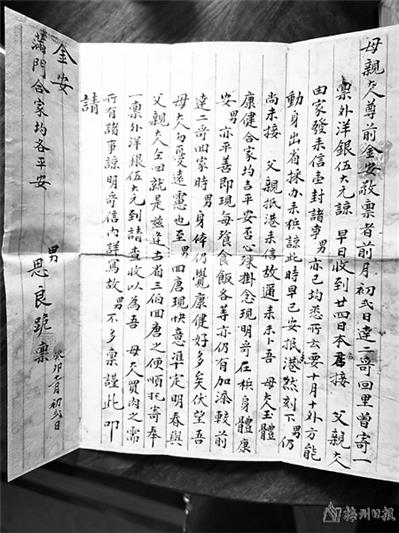 母親大人尊前金安敬稟者前月初弍日達二哥回里曾寄一
稟外洋銀伍大元諒 早日收到廿四日本唐接 父親大
由家發來信壹封諸事男亦已均悉所云要十月十外方能
動身出省採办來梹諒此時早已安抵港然刻下男仍
尚未接 父親抵港來信故通未卜吾 母大人玉體
康健合家均吉平安否心殊掛念現明哥在梹身體康
安男亦平善即現每飡食飯各弄亦仍有加添較前
達二哥回家時男身体仍覺康健好多矣伏望吾
母大人勿憂遠慮也至男回唐現快意準定明春與
父親大人仝回就是茲逢古省三伯回唐之便順托寄奉
一稟外洋銀伍大元到請查收以為吾 母大人買肉之需
所有諸事諒明哥信內詳寫故男不多稟謹此叩
請
金安
滿門合家均各平安
男 恩良跪稟
癸卯 月初 日
梅州日报